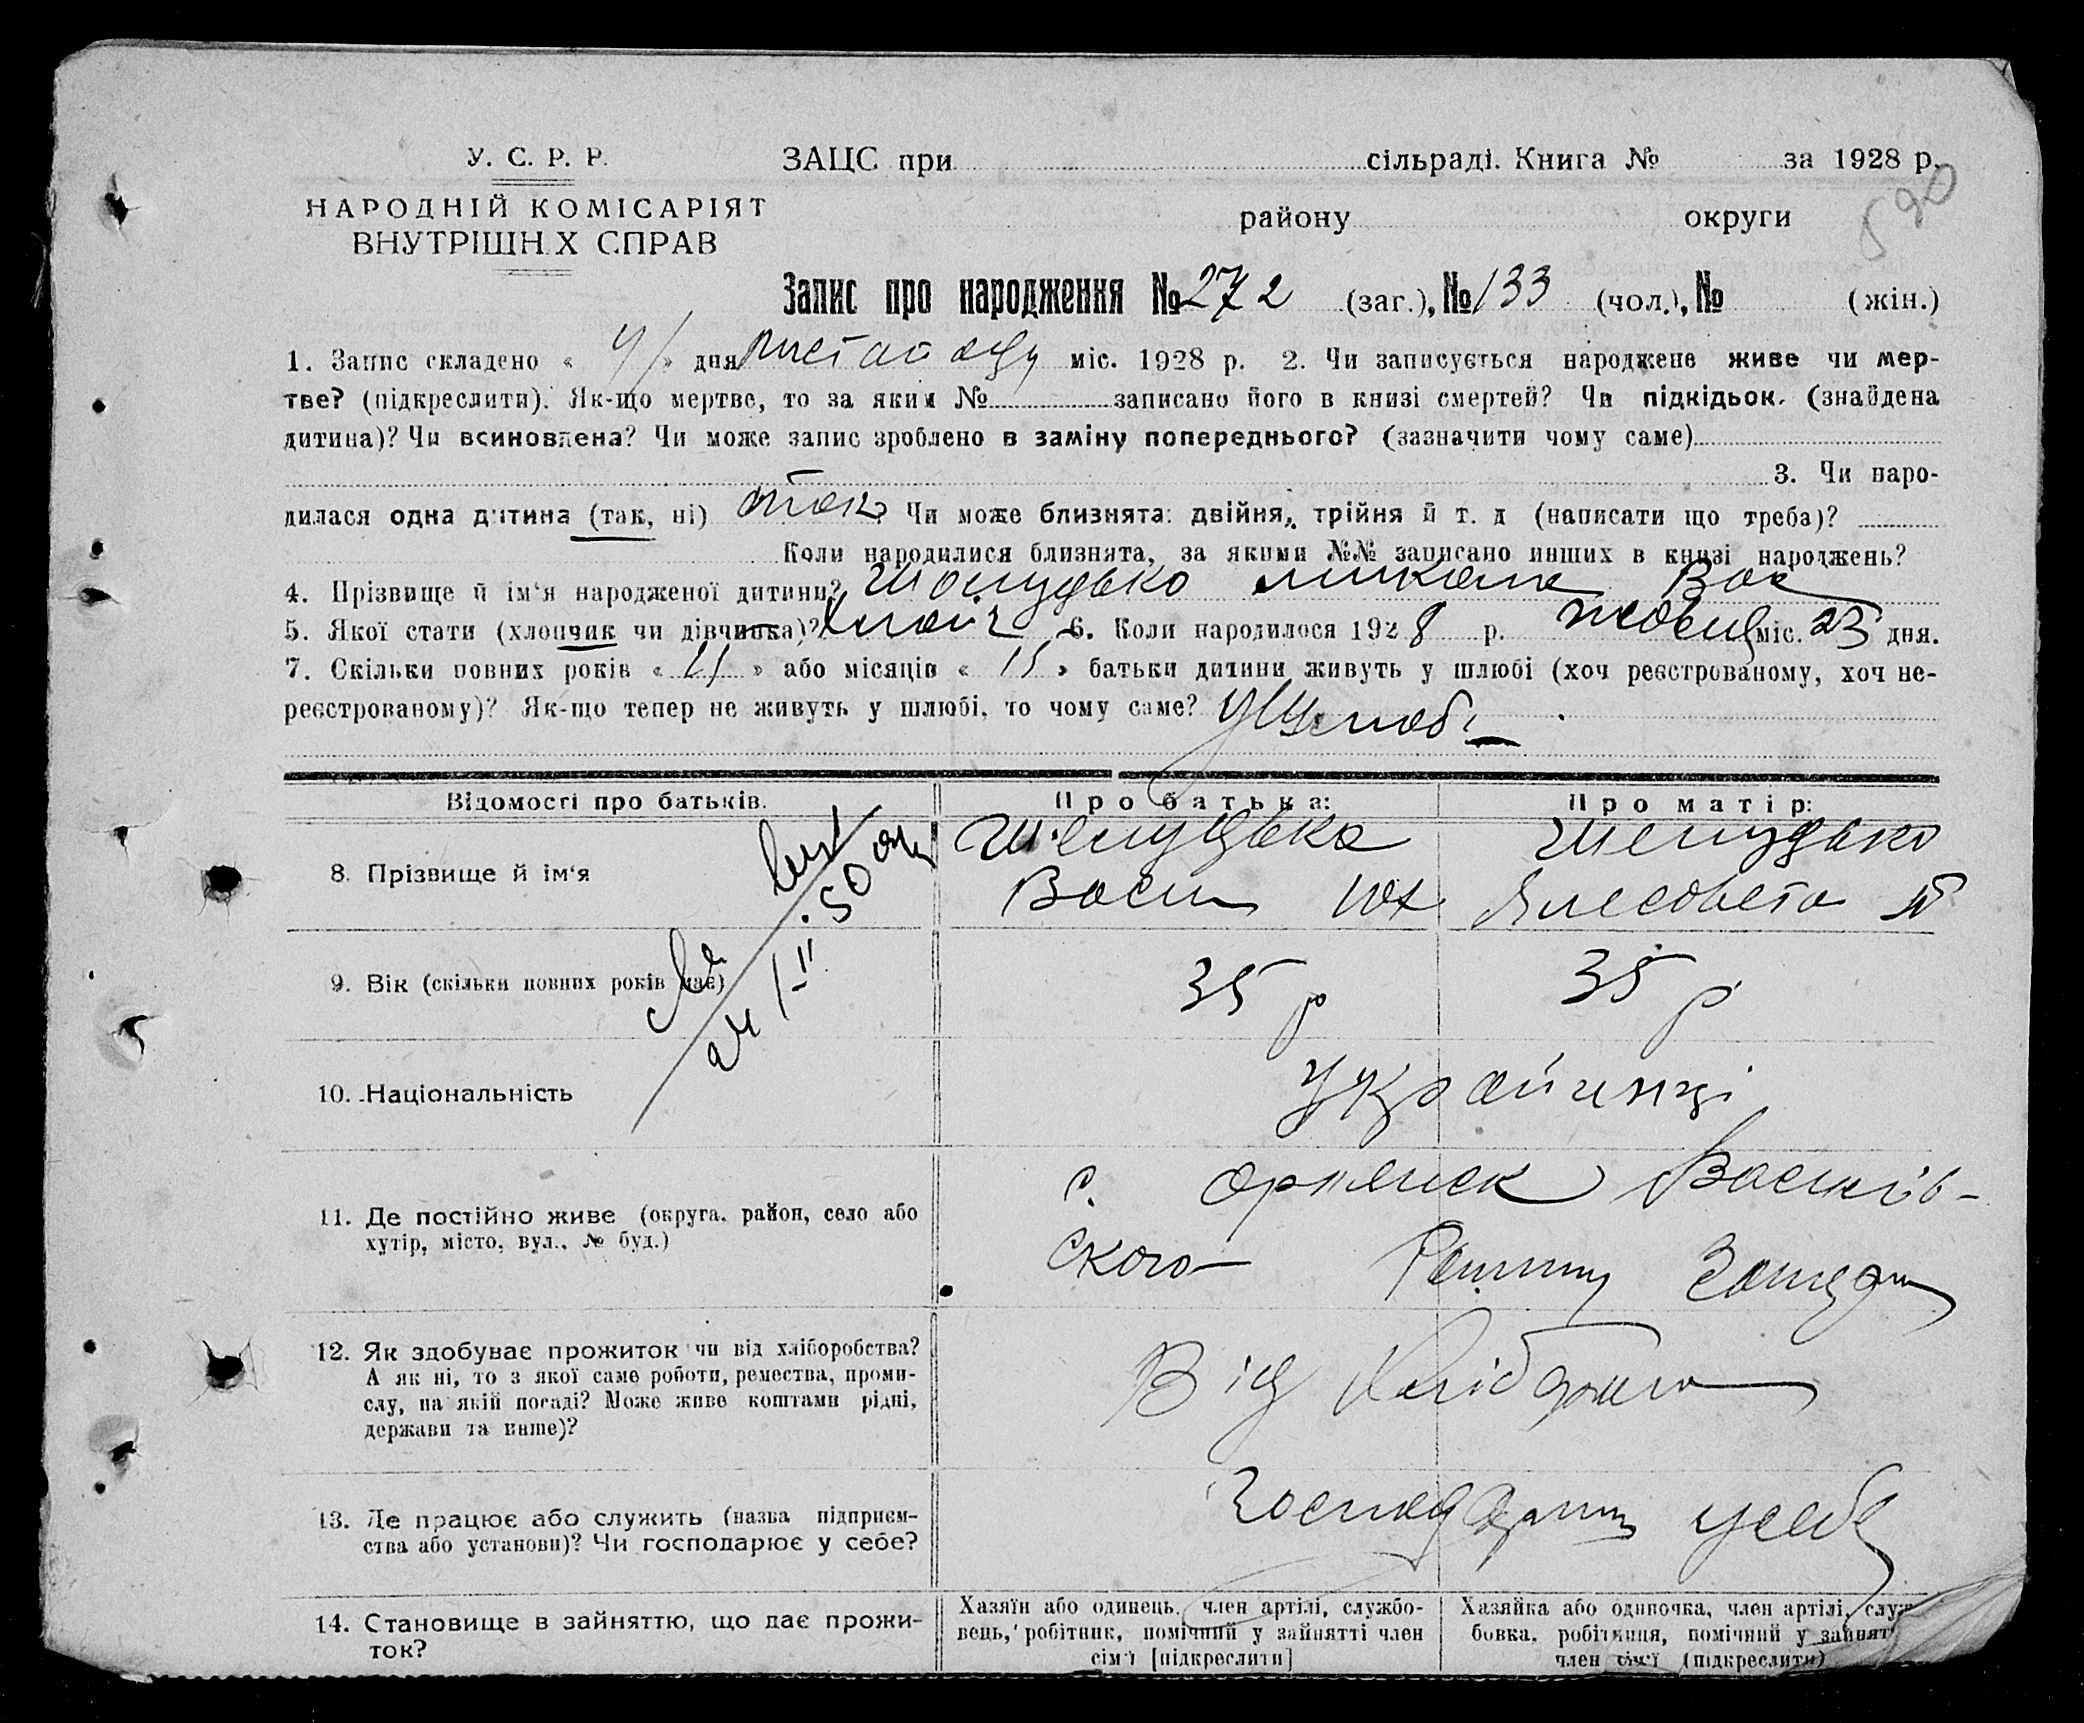 У. С. Р. Р.
ЗАЦС при сільраді. Книга № за 1928 р.
НАРОДНІЙ КОМІСАРІЯТ
ВНУТРІШН.Х СПРАВ
району округи
590
Запис про народження № 272 (заг.), № 133 (чол.), № (жін.)
1. Запис складено « » дня листопаду міс. 1928 р. 2. Чи записується народжене живе чи мер-
тве? (підкреслити). Як-що мертве, то за яким № записано його в книзі смертей? Чи підкідьок. (знайдена
дитина)? Чи всиновлена? Чи може запис зроблено в заміну попереднього? (зазначити чому саме)
3. Чи наро-
дилася одна дитина (так, ні) так Чи може близнята: двійня, трійня й т. д (написати що треба)?
Коли народилися близнята, за якими №№ записано инших в книзі народжень?
4. Прізвище й ім'я народженої дитини? Микола Вас
5. Якої стати (хлопчик чи дівчинка)? 6. Коли народилося 1928 р. жовтня міс. 23 дня.
7. Скільки повних років « » або місяців « » батьки дитини живуть у шлюбі (хоч реєстрованому, хоч не-
реєстрованому)? Як-що тепер не живуть у шлюбі, то чому саме? у шлюбі
Відомості про батьків.
Про батька:
Про матір:
8. Прізвище й ім'я
Шепудько
Шепудько
Васил
9. Вік (скільки повних років має)
35 р
35 р
10. Національність
Українці
11. Де постійно живе (округа, район, село або
хутір, місто, вул., № буд.)
с. Орлянск Василів-
ского Району Запорож
12. Як здобуває прожиток чи від хліборобства?
А як ні, то з якої саме роботи, ремества, проми-
слу, на якій посаді? Може живе коштами рідні,
держави та инше)?
Від
13. Де працює або служить (назва підприєм-
ства або установи)? Чи господарює у себе?
усебе
14. Становище в зайняттю, що дає прожи-
ток?
Хазяїн або одинець, член артілі, службо-
вець, робітник, помічний у зайнятті член
сім'ї [підкреслити]
Хазяйка або одиночка, член артілі, служ
бовка, робітниця, помічний у зайнят
член сім'ї (підкреслити)